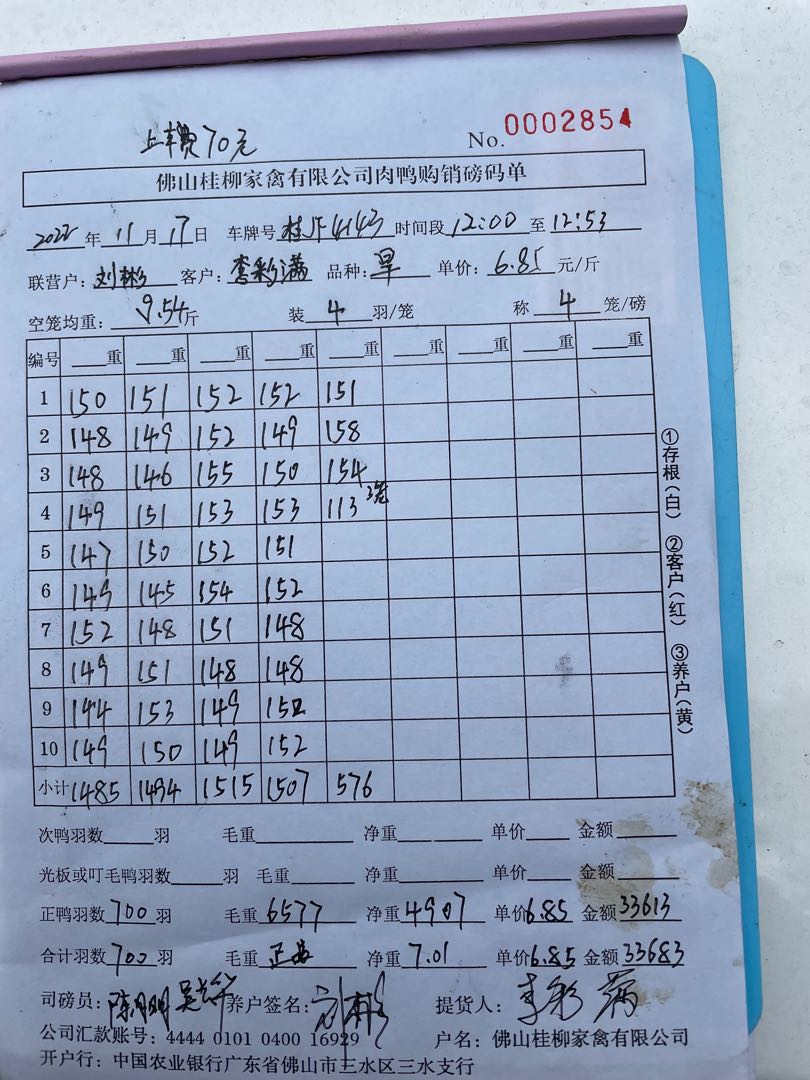 上车费70元
No. 0002854
佛山桂柳家禽有限公司肉鸭购销磅码单
2022年 11月 17日 车牌号 桂J14143 时间段 12:00 至 12:53
联营户: 刘彬 客户: 李彩满 品种: 旱 单价: 6.85 元/斤
空笼均重: 9.54斤 装 4 羽/笼 称 4 笼/磅
编号 重 重 重 重 重 重 重 重 重
1 150 151 152 152 151
2 148 149 152 149 158
3 148 146 155 150 154
4 149 151 153 153 113 3笼
5 147 150 152 151
6 149 145 154 152
7 152 148 151 148
8 149 151 148 148
9 144 153 149 152
10 149 150 149 152
小计 1485 1494 1515 1507 576
①存根(白) ②客户(红) ③养户(黄)
次鸭羽数 羽 毛重 净重 单价 金额
光板或叮毛鸭羽数 羽 毛重 净重 单价 金额
正鸭羽数 700 羽 毛重 6577 净重 4907 单价 6.85 金额 33613
合计羽数 700 羽 毛重 正品 净重 7.01 单价 6.85 金额 33683
司磅员: 养户签名: 刘彬 提货人: 李彩满
公司汇款账号: 4444 0101 0400 16929 户名: 佛山桂柳家禽有限公司
开户行: 中国农业银行广东省佛山市三水区三水支行